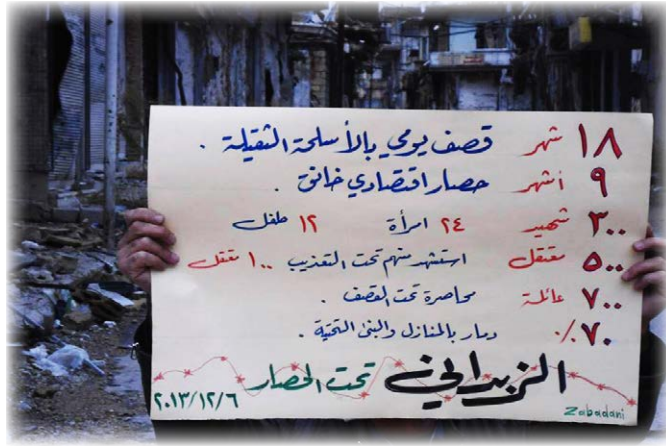 ١٨ شهر قصف يومي بالأسلحة الثقيلة .
٩ أشهر حصار اقتصادي خانق .
٣٠٠ شهيد ٢٤ امرأة ١٢ طفل
٥٠٠ معتقل استشهد منهم تحت التعذيب ١٠٠ معتقل
٧٠٠ عائلة محاصرة تحت القصف .
٧٠٪ دمار بالمنازل والبنى التحتية .
الزبداني تحت الحصار
٢٠١٣/١٢/٦
Zabadani